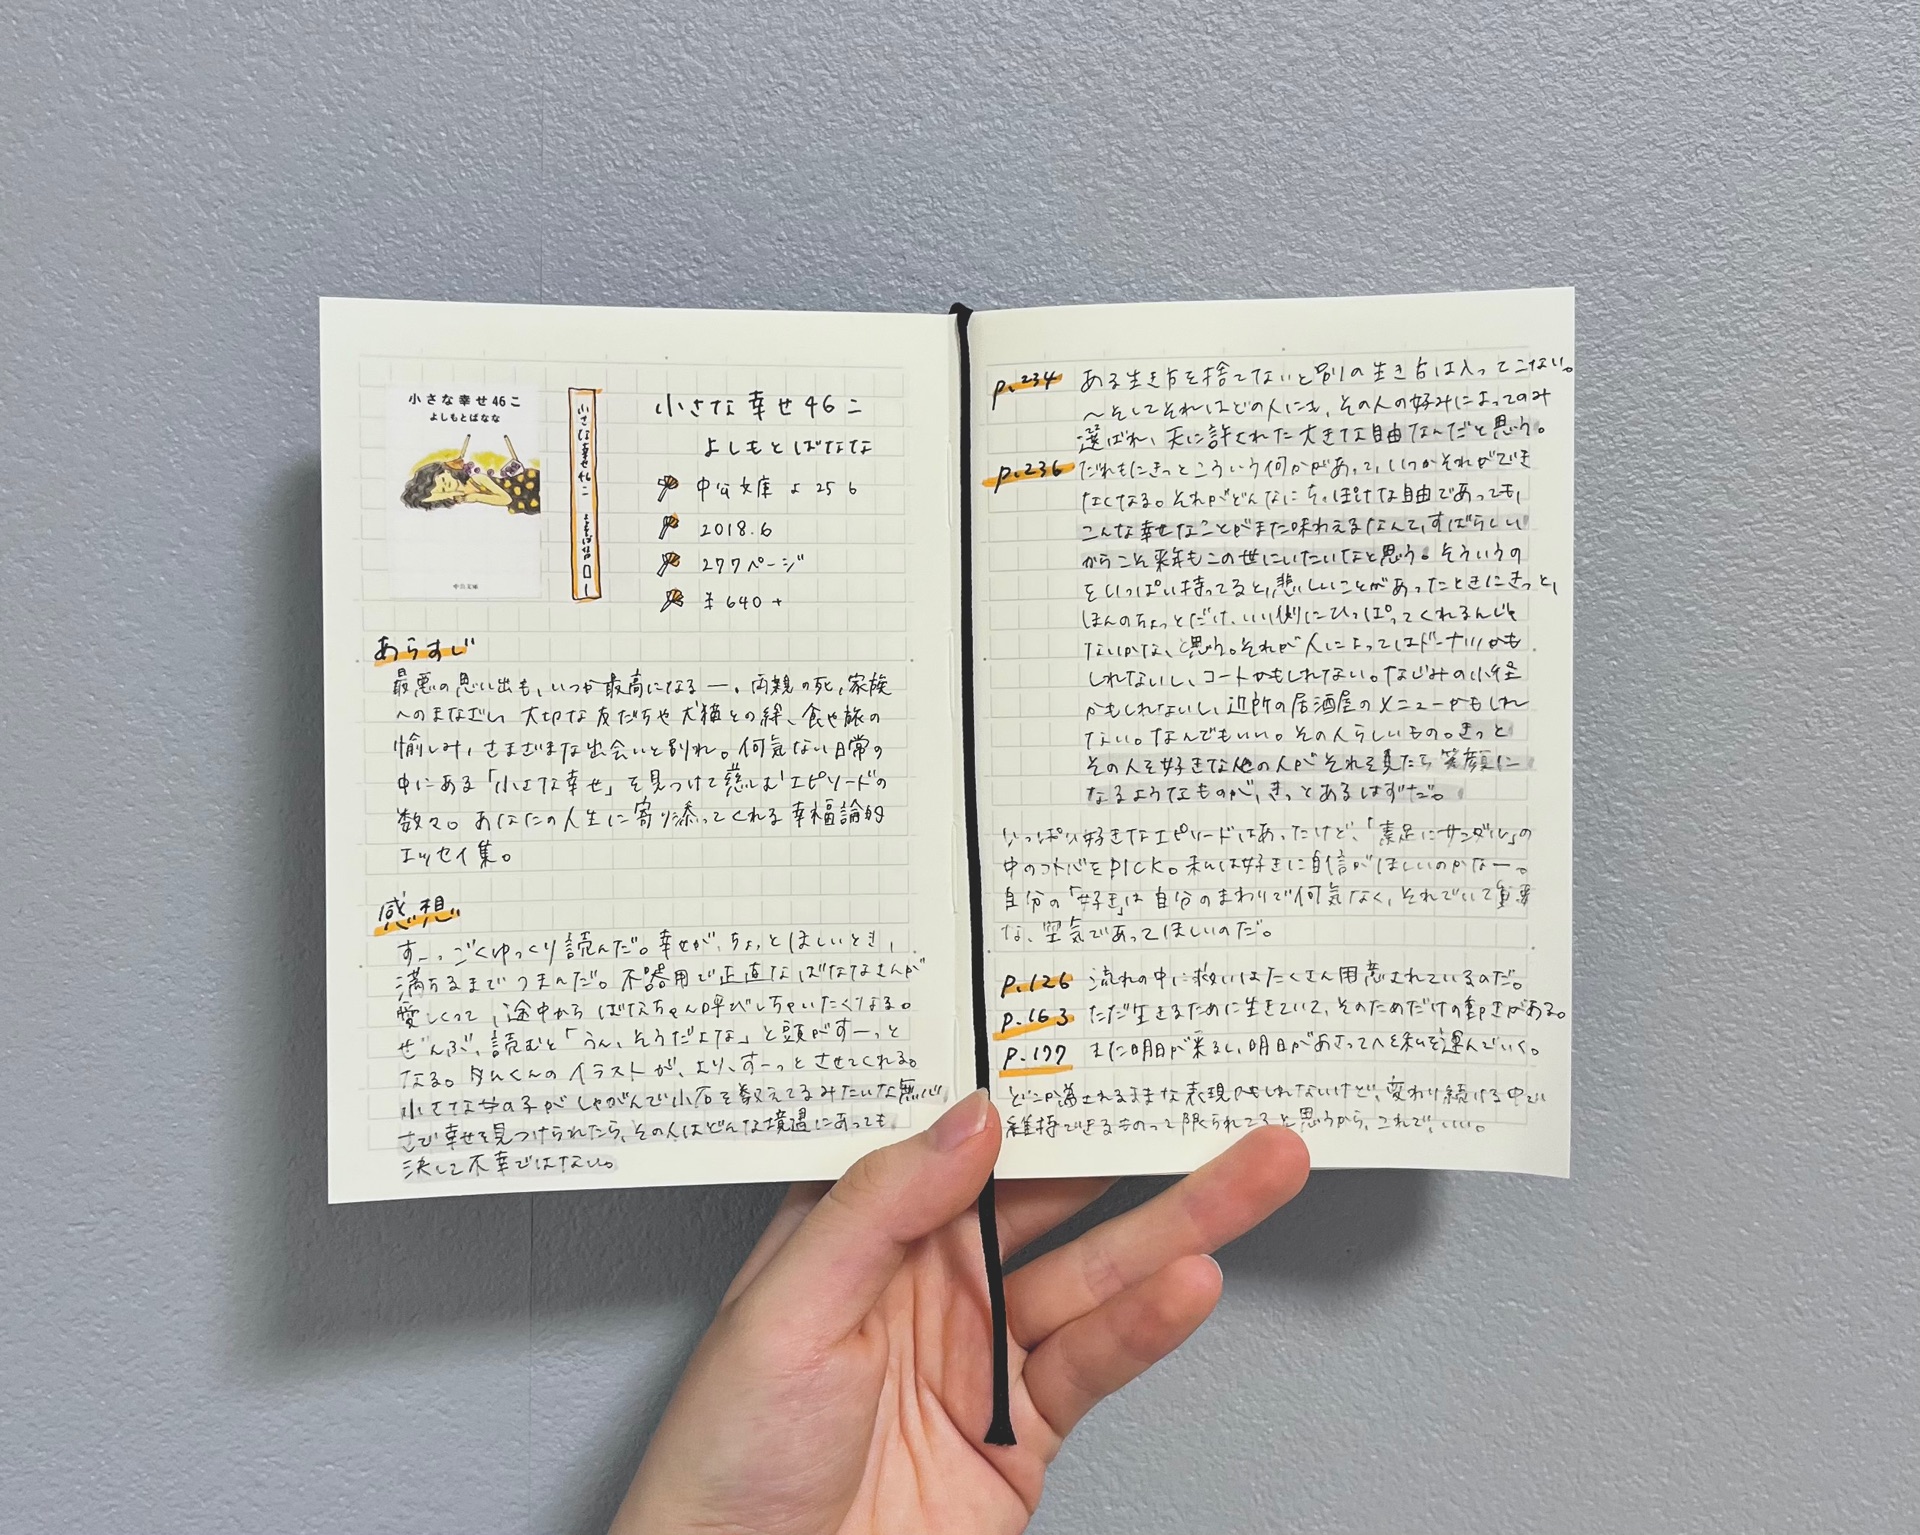 小さな幸せ46こ
よしもとばなな
中公文庫
小さな幸せ46こ
小さな幸せ46こ
よしもとばなな
中公文庫 よ 25 6
2018.6
277ページ
¥640+
あらすじ
最悪の思い出も、いつか最高になる―。両親の死、家族
へのまなざし、大切な友だちや犬猫との絆、食や旅の
愉しみ、さまざまな出会いと別れ。何気ない日常の
中にある「小さな幸せ」を見つけて慈しむエピソードの
数々。あなたの人生に寄り添ってくれる幸福論的
エッセイ集。
感想
すーっごくゆっくり読んだ。幸せが、ちょっとほしいとき、
満ちるまでつまんだ。不器用で正直なばななさんが
愛しくって、途中からばなちゃん呼びしちゃいたくなる。
ぜんぶ、読むと「うん、そうだよな」と頭がすーっと
なる。タムくんのイラストが、より、すーっとさせてくれる。
小さな女の子がしゃがんで小石を数えてるみたいな無心
さで幸せを見つけられたら、その人はどんな境遇にあっても
決して不幸ではない。
p.234 ある生き方を捨てないと別の生き方は入ってこない。
〜そしてそれはどの人にも、その人の好みによってのみ
選ばれ、天に許された大きな自由なんだと思う。
p.236 だれもにきっとこういう何かがあって、いつかそれができ
なくなる。それがどんなにちっぽけな自由であっても、
こんな幸せなことがまた味わえるなんて、すばらしい
からこそ来年もこの世にいたいなと思う。そういうの
をいっぱい持ってると、悲しいことがあったときにきっと、
ほんのちょっとだけ、いい側にひっぱってくれるんじゃ
ないかな、と思う。それが人によってはドーナツかも
しれないし、コートかもしれない。なじみの小径
かもしれないし、近所の居酒屋のメニューかもしれ
ない。なんでもいい。その人らしいもの。きっと
その人を好きな他の人がそれを見たら笑顔に
なるようなものが、きっとあるはずだ。
いっぱい好きなエピソードはあったけど、「素足にサンダル」の
中のコトバをPICK。私は好きに自信がほしいのかなー。
自分の「好き」は自分のまわりで何気なく、それでいて重要
な、空気であってほしいのだ。
p.126 流れの中に救いはたくさん用意されているのだ。
p.163 ただ生きるために生きていて、そのためだけの動きがある。
p.177 また明日が来るし、明日があさってへと私を運んでいく。
どこか流されるままな表現かもしれないけど、変わり続ける中で
維持できるものって限られてると思うから、これで、いい。